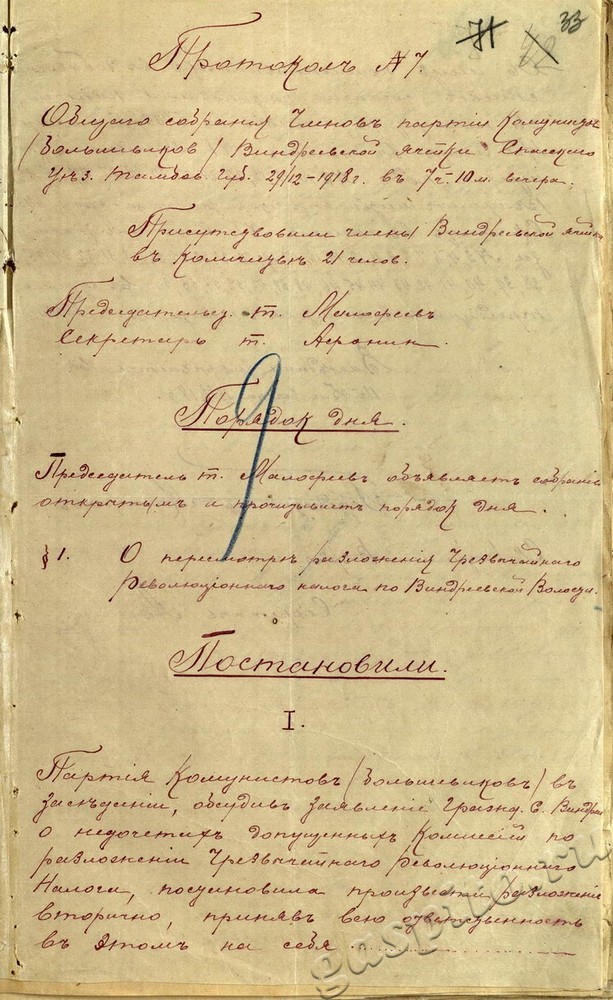 71 32 33
Протоколъ № 7.
Общаго собрания Членовъ партіи Комунист.
/большъвиков/ Виндреевской ячейки Спасскаго
Уъз. Тамбов. Губ. 29/12-1918 г. въ 7 ч-10 м. вечера.
Присутсвовали члены Виндреевской ячейк
въ Количецтвъ 21 челов.
Предсъдательсд. т. Малофеевъ
Секретарь т. Агронин.
9
Порядок дня.
Предсъдатель т. Малофеевъ объявляетъ собраніе
открытымъ и прочитываетъ порядок дня.
§ 1. О пересмотръ разложенія Чрезвычайнаго
Революціоннаго налога по Виндреевской Волости.
Постановили.
I.
Партія Комунистовъ /большъвиковъ/ въ
засъдении, обсудив заявленіе Гражд. С. Виндрей
о недочетихъ допущенныхъ Комиссіей по
разложенію Чрезвычайнаго Революціоннаго
Налога, постановила произвести разложение
вторично, принявъ всю отвътственность
въ этомъ на себя
gaspiro.ru